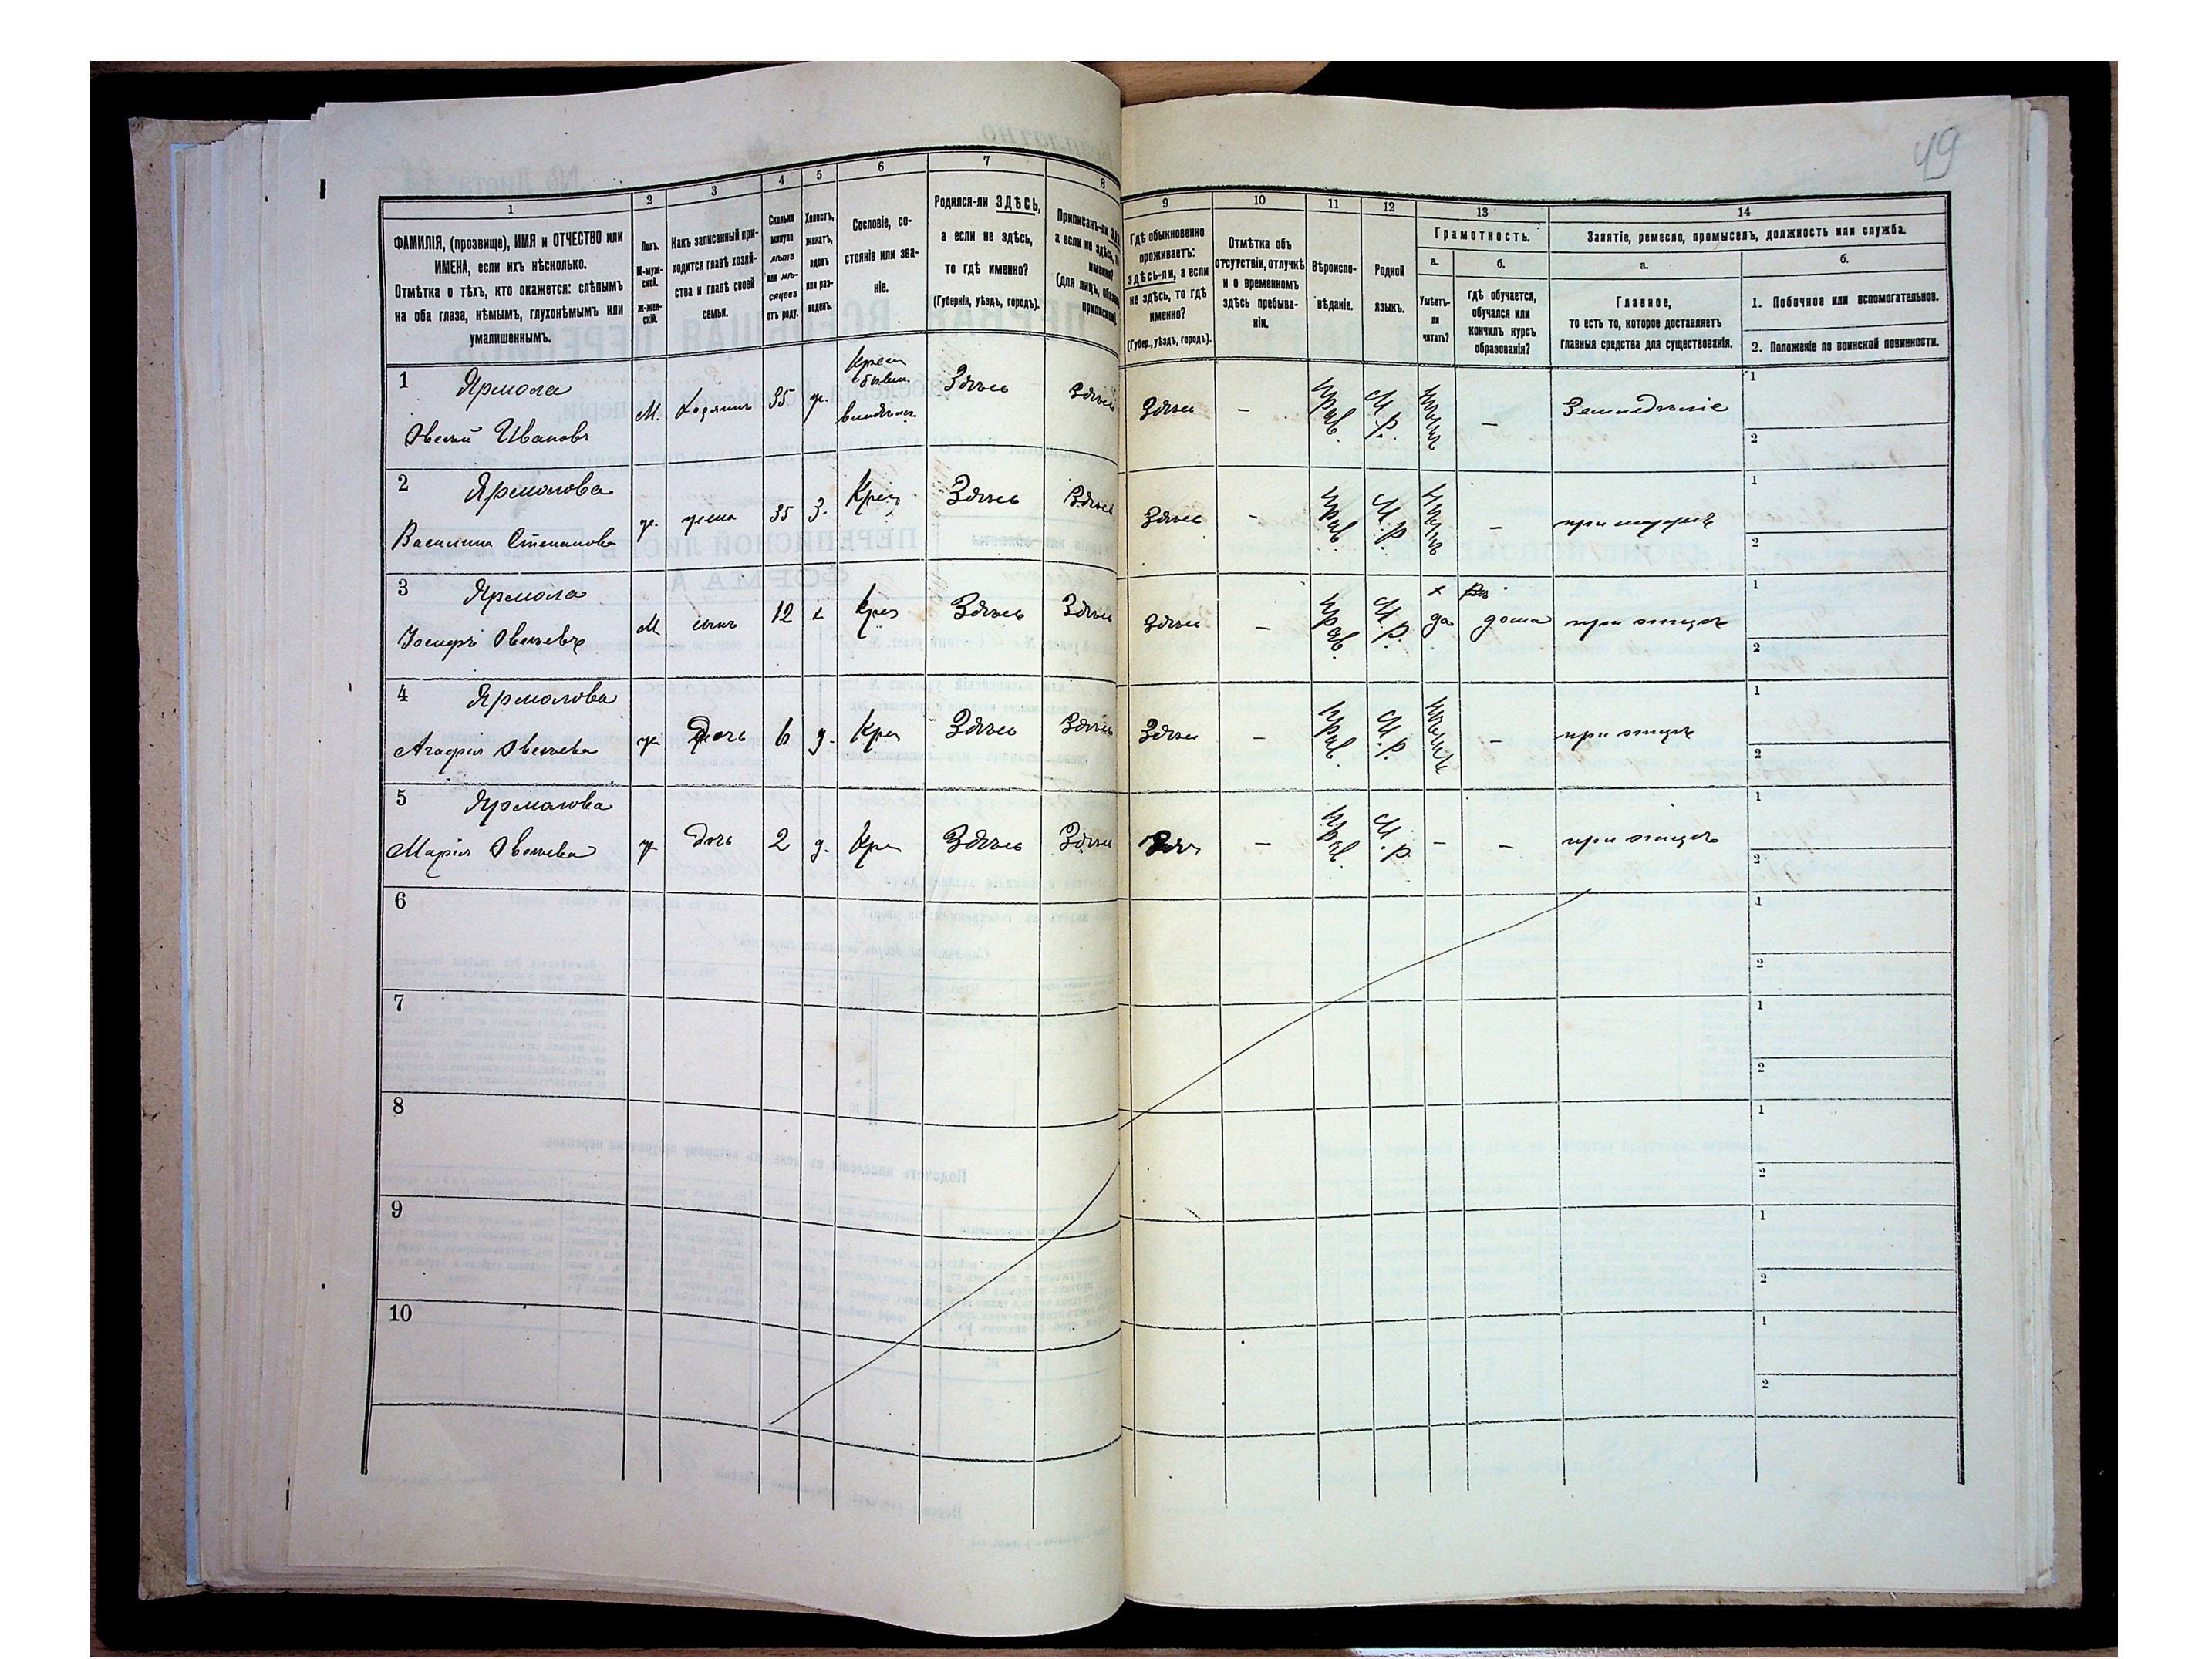 49
1
ФАМИЛІЯ, (прозвище), ИМЯ и ОТЧЕСТВО или
ИМЕНА, если ихъ нѣсколько.
Отмѣтка о тѣхъ, кто окажется: слѣпымъ
на оба глаза, нѣмымъ, глухонѣмымъ или
умалишеннымъ.
2
Полъ.
М-муж-
ской.
ж-жен-
скій.
3
Какъ записанный при-
ходится главѣ хозяй-
ства и главѣ своей
семьи.
4
Сколько
минуло
лѣтъ
или мѣ-
сяцевъ
отъ роду.
5
Холостъ,
женатъ,
вдовъ
или раз-
веденъ.
6
Сословіе, со-
стояніе или зва-
ніе.
7
Родился-ли ЗДѢСЬ,
а если не здѣсь,
то гдѣ именно?
(Губернія, уѣздъ, городъ).
8
Приписанъ-ли
а если не здѣсь,
именно?
(для лицъ,
9
Гдѣ обыкновенно
проживаетъ:
здѣсь-ли, а если
не здѣсь, то гдѣ
именно?
(Губер., уѣздъ, городъ).
10
Отмѣтка объ
отсутствіи, отлучкѣ
и о временномъ
здѣсь пребыва-
ніи.
11
Вѣроиспо-
вѣданіе.
12
Родной
языкъ.
13
Грамотность.
а.
Умѣетъ-
ли
читать?
б.
Гдѣ обучается,
обучался или
кончилъ курсъ
образованія?
14
Занятіе, ремесло, промыселъ, должность или служба.
а.
Главное,
то есть то, которое доставляетъ
главныя средства для существованія.
б.
1. Побочное или вспомогательное.
2. Положеніе по воинской повинности.
1 Ярмола
Ивановъ
М. Хозяинъ 35 ж. Здѣсь Здѣсь Здѣсь - Прав. М. Р. - Земледѣліе
1
2
2 Ярмолова
Василина Степанова
ж. жена 35 З. Крес Здѣсь Здѣсь Здѣсь - Прав. М. Р. - при мужѣ
1
2
3 Ярмола
Іосифъ Овсѣевъ
М сынъ 12 х Крес Здѣсь Здѣсь Здѣсь - Прав. М. Р. да дома при отцѣ
1
2
4 Ярмолова
Агафія Овсѣева
ж Дочь 6 д. Крес Здѣсь Здѣсь Здѣсь - Прав. М. Р. - при отцѣ
1
2
5 Ярмолова
Марія Овсѣева
ж Дочь 2 д. Кре Здѣсь Здѣсь - Прав. М. Р. - - при отцѣ
1
2
6
1
2
7
1
2
8
1
2
9
1
2
10
1
2